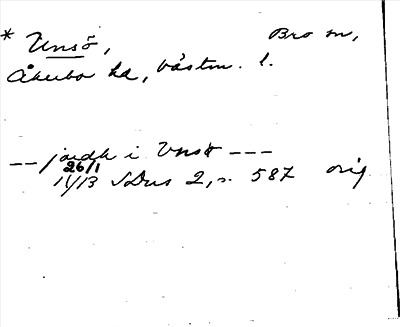 * Unsö, Bro sn,
Åkerbo hd, Västm. l.
-- jordh i Vnsø ---
26/1
1413 SDns 2, s. 587 orig